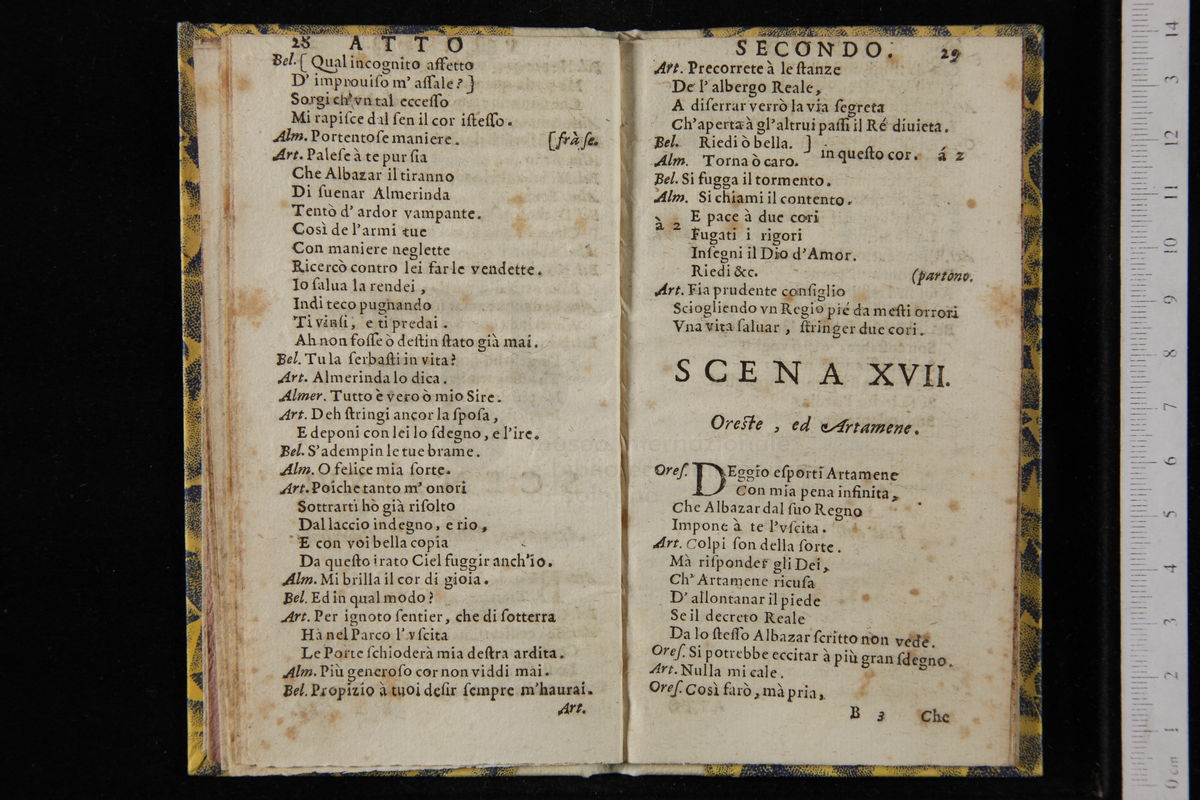 28 ATTO
Bel. [ Qual incognito affetto
D' improuiſo m' aſſale? ]
Sorgi ch' vn tal ecceſſo
Mi rapiſce dal ſen il cor iſteſſo.
Alm. Portentoſe maniere. [frà ſe.
Art. Paleſe à te pur ſia
Che Albazar il tiranno
Di ſuenar Almerinda
Tentò d' ardor vampante.
Così de l'armi tue
Con maniere neglette
Ricercò contro lei far le vendette.
Io ſalua la rendei,
Indi teco pugnando
Ti vinſi, e ti predai.
Ah non foſſe ò deſtin ſtato già mai.
Bel. Tu la ſerbaſti in vita?
Art. Almerinda lo dica.
Almer. Tutto è vero ò mio Sire.
Art. Deh ſtringi ancor la ſpoſa,
E deponi con lei lo ſdegno, e l'ire.
Bel. S'adempin le tue brame.
Alm. O felice mia ſorte.
Art. Poiche tanto m' onori
Sottrarti hò già riſolto
Dal laccio indegno, e rio,
E con voi bella copia
Da queſto irato Ciel fuggir anch'io.
Alm. Mi brilla il cor di gioia.
Bel. Ed in qual modo?
Art. Per ignoto ſentier, che di ſotterra
Hà nel Parco l' vſcita
Le Porte ſchioderà mia deſtra ardita.
Alm. Più generoſo cor non viddi mai.
Bel. Propizio à tuoi deſir ſempre m'haurai.
Art.
SECONDO. 29
Art. Precorrete à le ſtanze
De l' albergo Reale,
A diſerrar verrò la via ſegreta
Ch'aperta à gl'altrui paſſi il Ré diuieta.
Bel. Riedi ò bella. ] in queſto cor. á 2
Alm. Torna ò caro.
Bel. Si fugga il tormento.
Alm. Si chiami il contento.
à 2 E pace à due cori
Fugati i rigori
Inſegni il Dio d'Amor.
Riedi &c. (partono.
Art. Fia prudente conſiglio
Sciogliendo vn Regio pié da meſti orrori
Vna vita ſaluar, ſtringer due cori.
SCENA XVII.
Oreſte, ed Artamene.
Oreſ. DEggio eſporti Artamene
Con mia pena infinita,
Che Albazar dal ſuo Regno
Impone à te l'vſcita.
Art. Colpi ſon della ſorte.
Mà riſponder gli Dei,
Ch' Artamene ricuſa
D' allontanar il piede
Se il decreto Reale
Da lo ſteſſo Albazar ſcritto non vede.
Oreſ. Si potrebbe eccitar à più gran ſdegno.
Art. Nulla mi cale.
Oreſ. Così farò, mà pria,
B 3 Che
14
13
12
11
10
9
8
7
6
5
4
3
2
1
0 cm